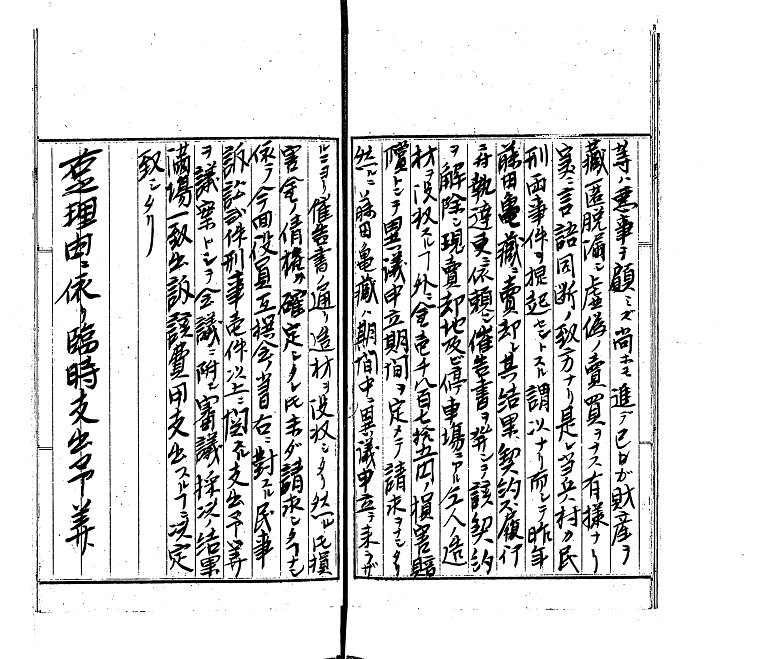 等ハ悪事ヲ顧ミズ尚ホ進デ己ガ財産ヲ
蔵匿脱漏シ虚偽ノ賣買ヲナス有様ナリ
実ニ言語同断ノ致方ナリ是レ当兵村ガ民
刑両事件ヲ提起セントスル謂以ナリ而シテ昨年
藤田亀蔵ニ賣却シ其ノ結果契約不履行
ニ付執達吏ニ依頼シ催告書ヲ発シテ該契約
ヲ解除シ現賣却地及ビ停車場ニアル仝人造
材ヲ没収スルノ外ニ金壱千八百七拾五円ノ損害賠
償トシテ異議申立期間ヲ定メテ請求ヲナシタリ
然ルニ藤田亀蔵ハ期間中ニ異議申立テ来ラザ
ルニヨリ催告書ノ通リ造材ヲ没収シタリ然ルニ氏損
害金ノ債権ガ確定シタレ氏未ダ請求シタルナシ
依テ今回役員互撰会ノ当右ニ對スル民事
訴訟弐件刑事壱件以上ニ関スル支出予算
ヲ議案トシテ会議ニ附シ審議ノ採次ノ結果
満場一致出訴該費用支出スルコトニ決定
致シタリ
壱、理由ニ依リ臨時支出予算